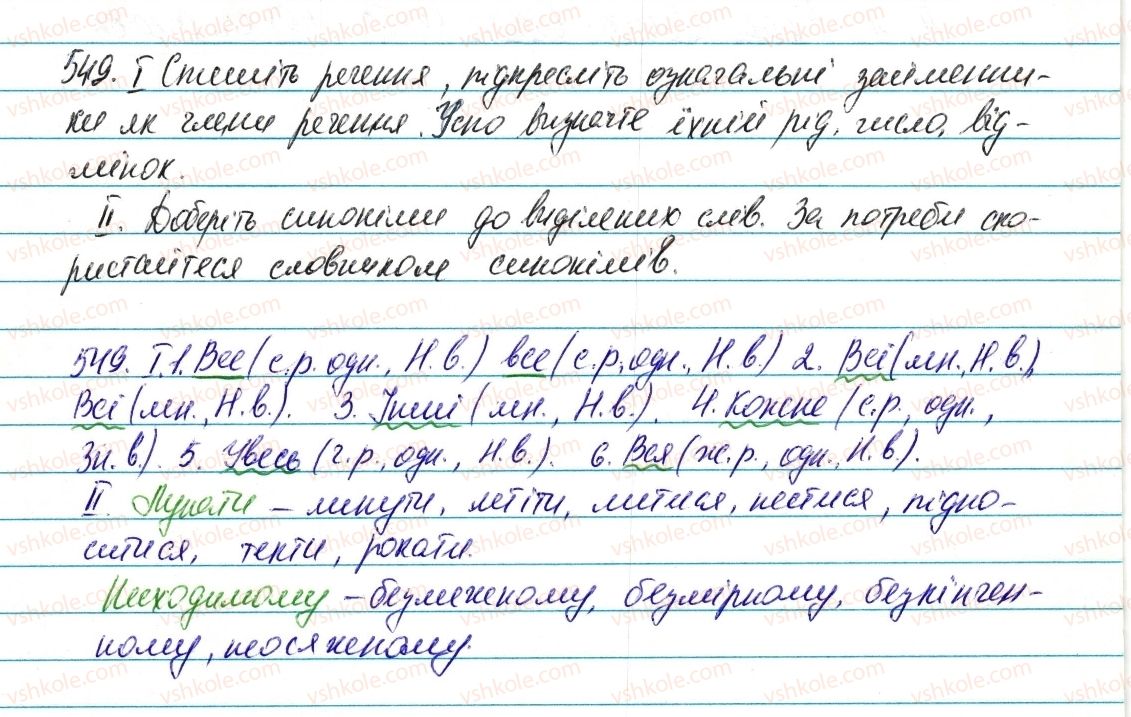 549. I Спишіть речення, підкресліть означальні займенни-
ки як члени речення. Усно визначте їхній рід, число, від-
мінок.
II. Доберіть синоніми до виділених слів. За потреби ско-
ристайтеся словничком синонімів.
549. I.1. Все (с.р. одн., Н.в.) все (с.р., одн., Н.в.) 2. Всі (мн., Н.в.),
Всі (мн., Н.в.). 3. Інші (мн., Н.в.). 4. Кожне (с.р., одн.,
Зн.в.). 5. Увесь (ч.р., одн., Н.в.). 6. Вся (ж.р., одн., Н.в.).
II. Лунати – линути, летіти, литися, нестися, підно-
ситися, текти, рокати.
Несходимому – безмежному, безмірному, безкінчен-
ному, неосяжному.
vshkole.com